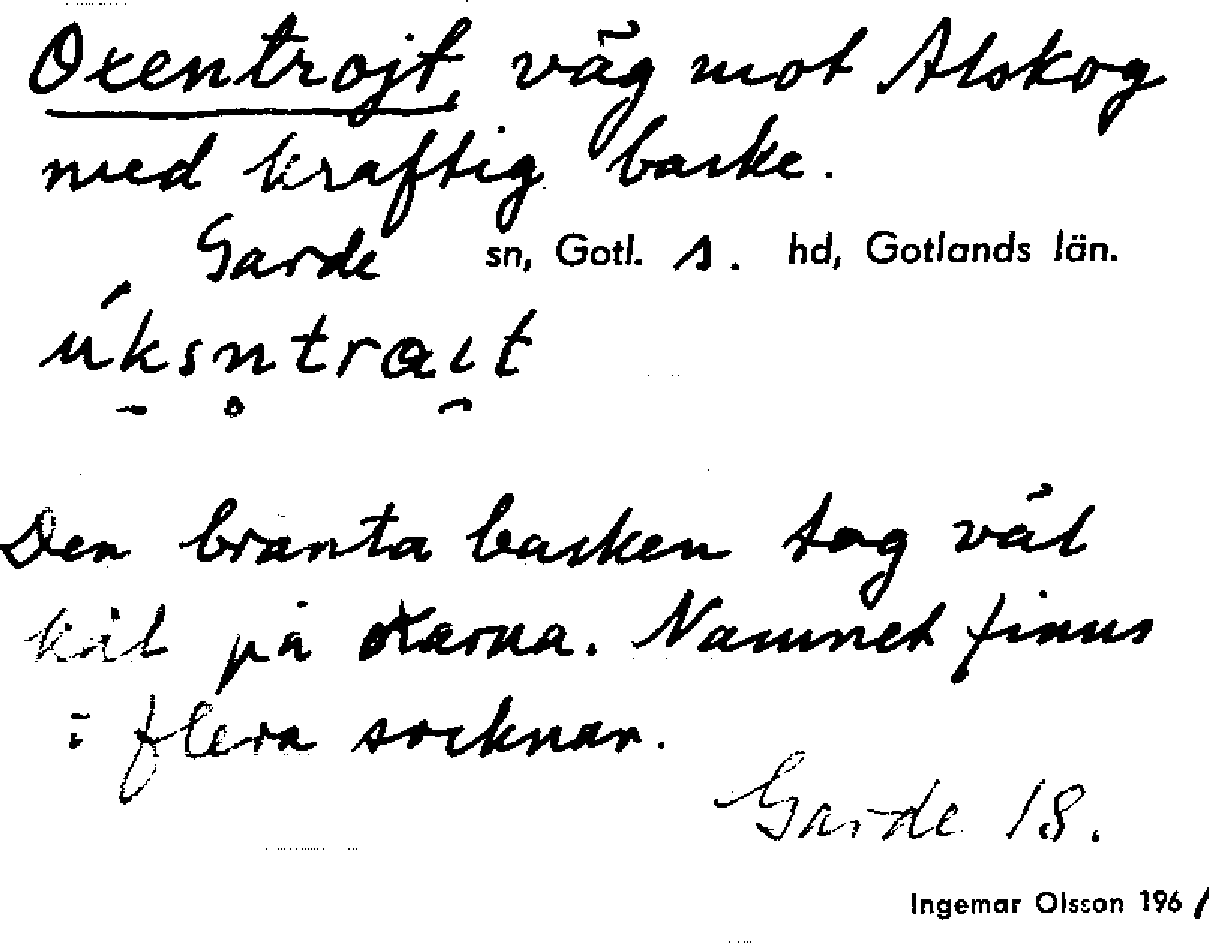 Oxentrojt, väg mot Alskog
med kraftig backe.
Garde sn, Gotl. s. hd, Gotlands län.
úksn̥trai̯t
Den branta backen tog väl
hårt på oxarna. Namnet finns
i flera socknar.
Garde 18.
Ingemar Olsson 1961